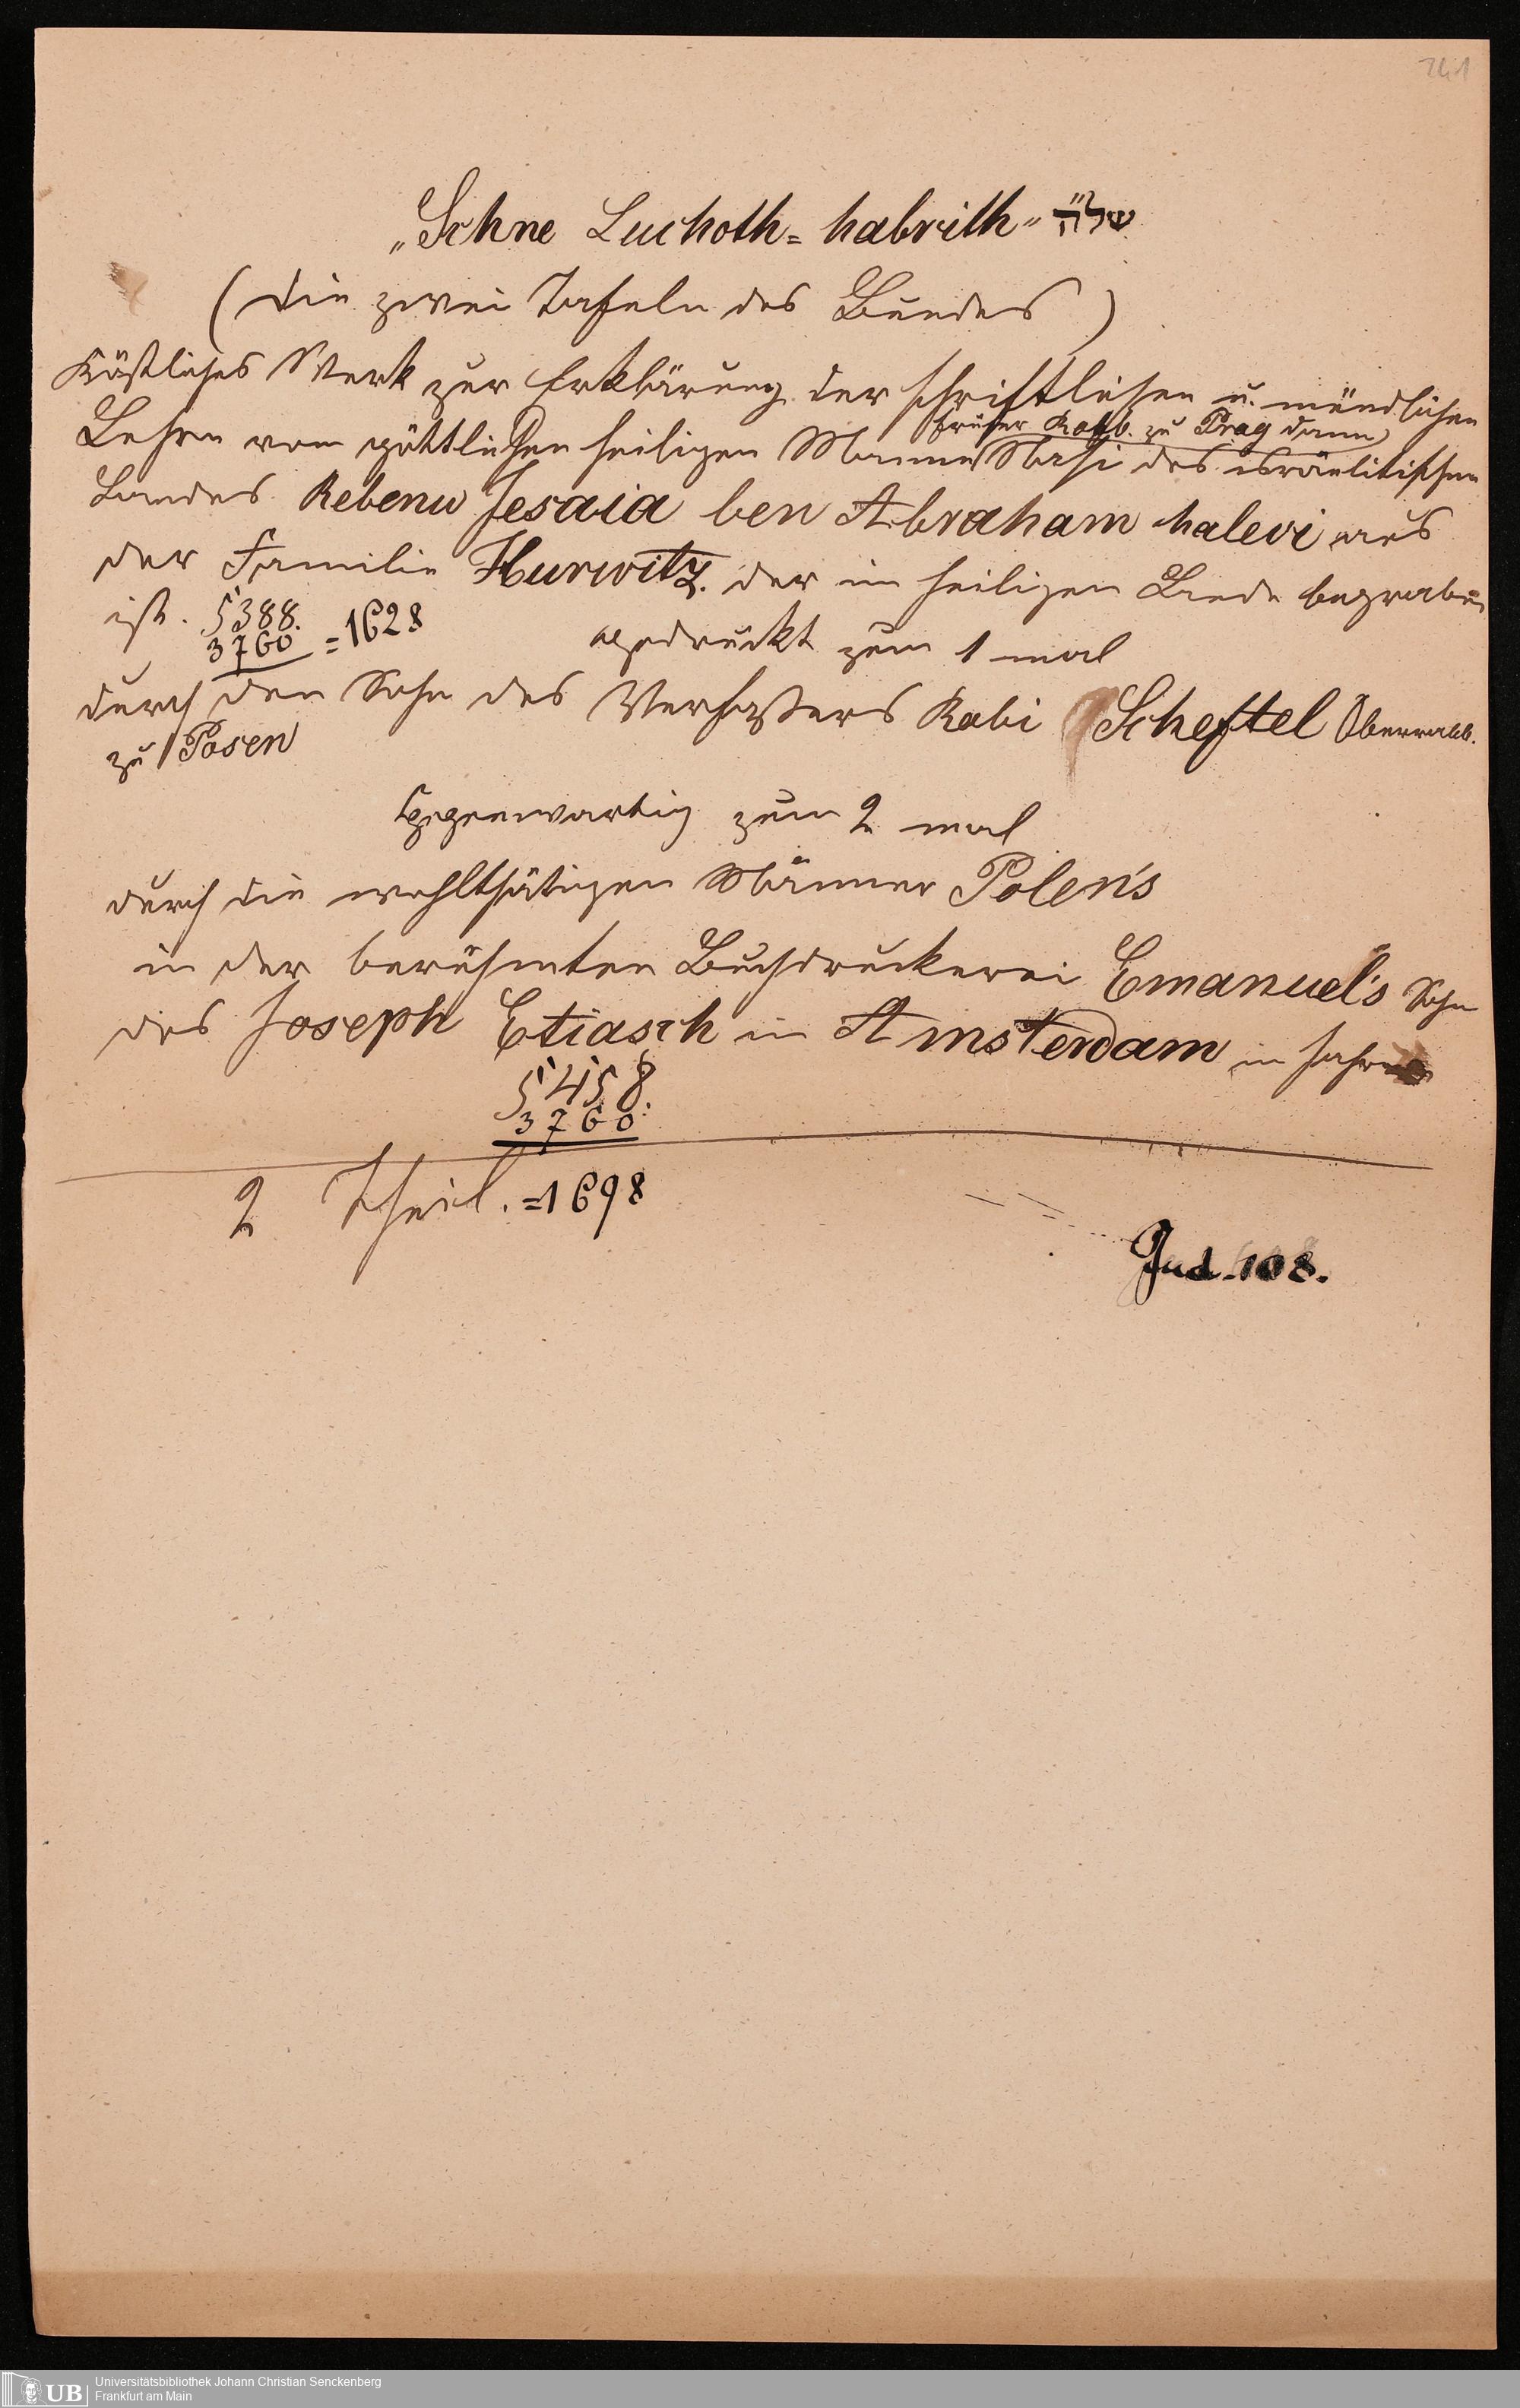 241
„Schne Luchoth= habrith“ של״ה
(Die zwei Tafeln des Bundes)
Köstliches Werk zur Erklärung der schriftlichen u. mündlichen
früher Rabb. zu Prag dann
Lehre vom göttlichen heiligen Manne Nasi des israelitischen
Landes Rebenu Jesaia ben Abraham halevi aus
der Familie Hurwitz. der im heiligen Lande begraben
ist. 5388.
3760 = 1628
gedruckt zum 1 mal
durch den Sohn des Verfaßers Rabi Scheftel Oberrabb.
zu Posen
Gegenwartig zum 2 mal
durch die wohlthätigen Männer Polen's
in der berühmten Buchdruckerei Emanuel's Sohn
des Joseph Etiasch in Amsterdam im Jahre
5458.
3760.
2 Theil. =1698
Jud. 108.
UB Universitätsbibliothek Johann Christian Senckenberg
Frankfurt am Main